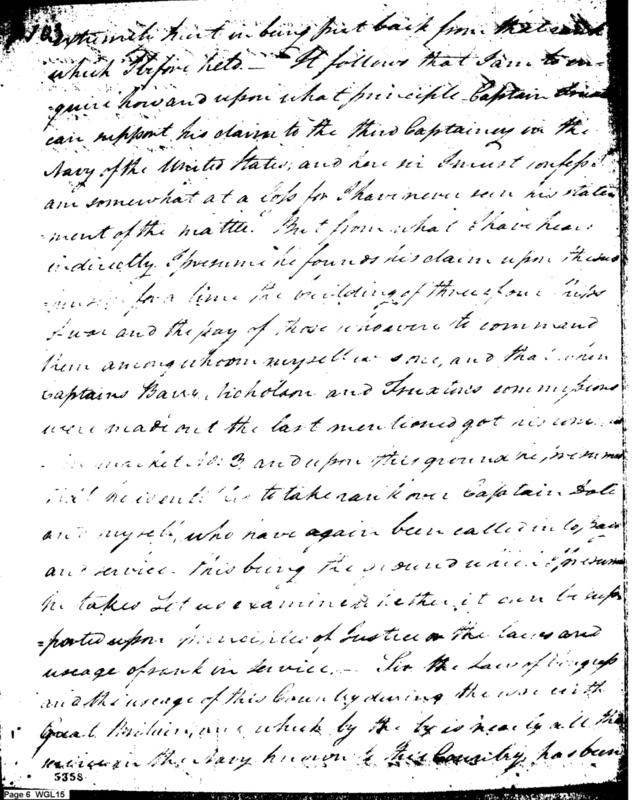 extremely hurt in being put back from that rank
which I before held. — It follows that I am to en-
quire how and upon what principle Captain
can support his claim to the third Captaincy in the
Navy of the United States, and here sir I must confess I
am somewhat at a loss for I have never seen his state-
ment of the matter. But from what I have heard
indirectly I presume he founds his claim upon the sus
for a time the building of three of our Ships
of war and the pay of those who were to command
them among whom myself was one, and that when
Captains Barry, Nicholson and Truxtuns commissions
were made out the last mentioned got his
market No. 3, and upon this ground he presumes
that he is entitled to take rank over Captain Dale
and myself, who have again been called into
and service. This being the ground which I presume
he takes Let us examine whether it can be sup-
=ported upon principles of Justice or the laws and
useage of rank in service. — Sir the Laws of Congress
and the useage of this Country during the war with
Great Britain, and which by the by is nearly all the
in the Navy known to this Country, has been
5358
Page 6 WGL15